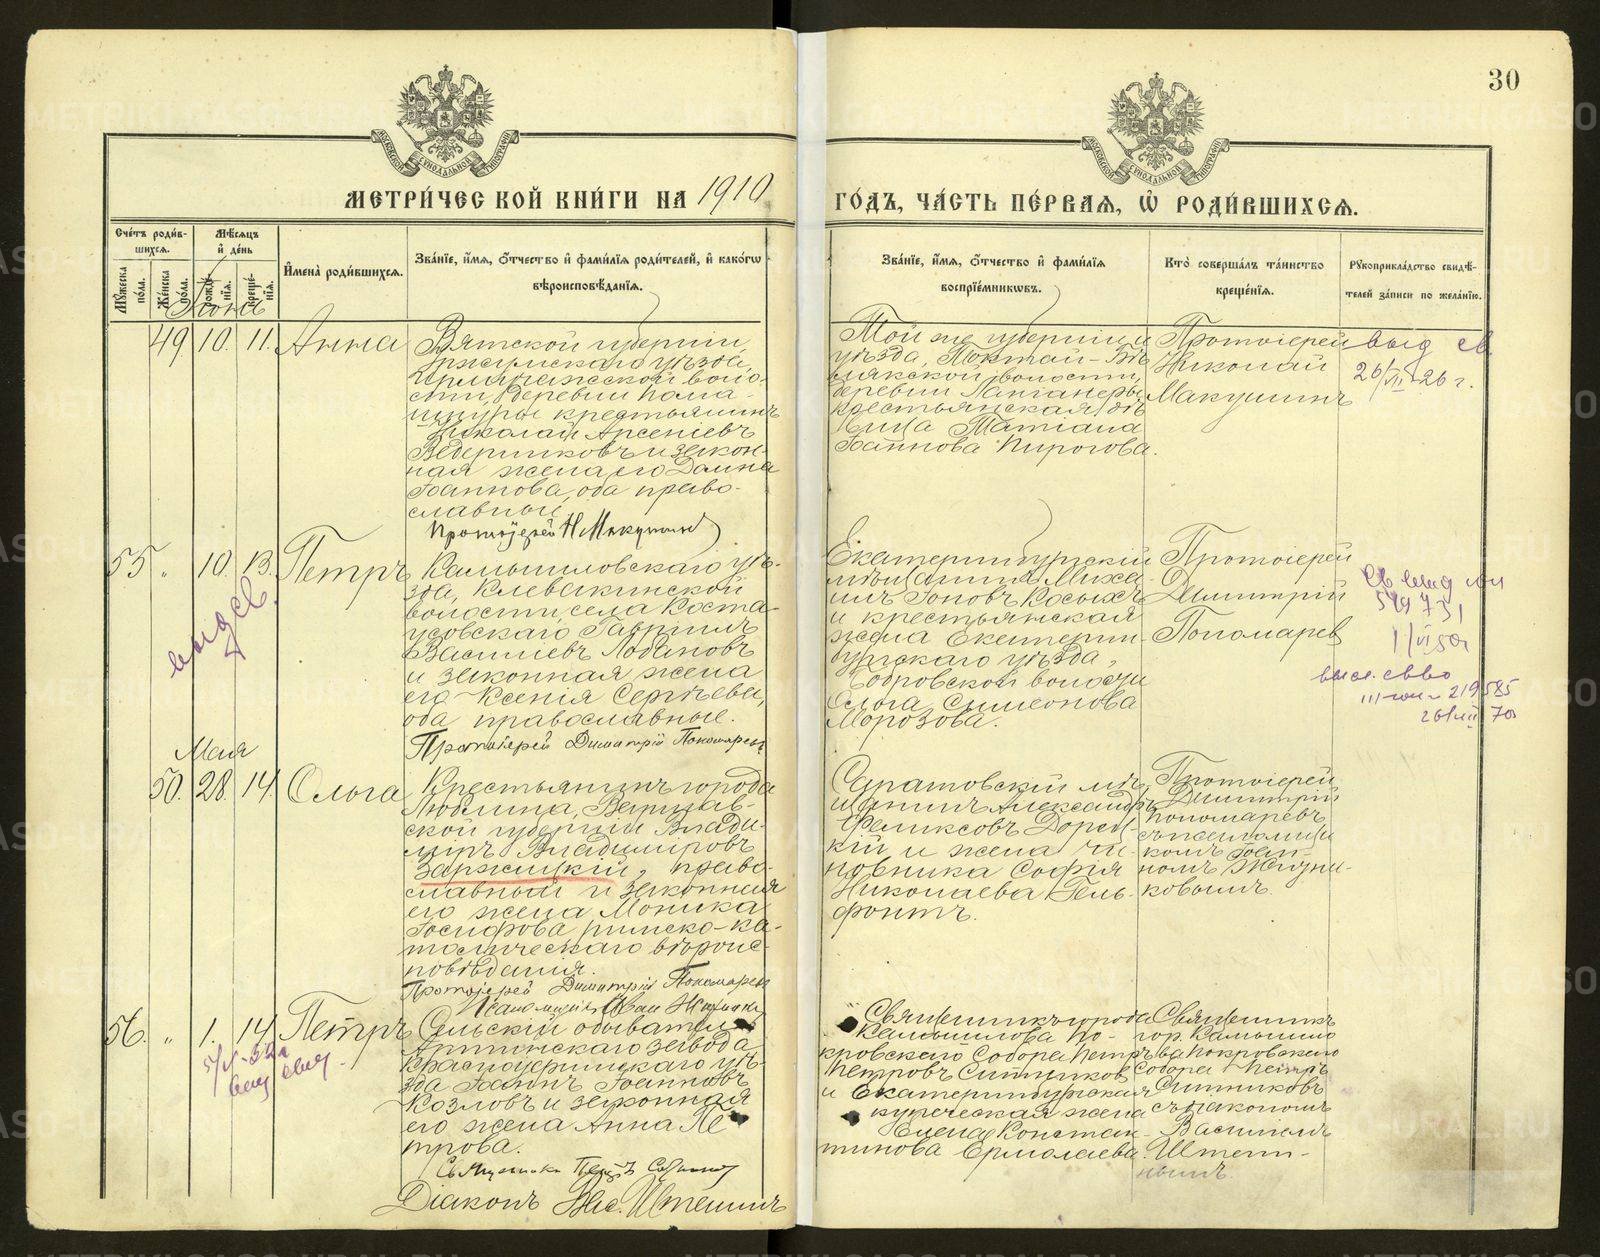 30
МЕТРИ́ЧЕСКОЙ КНИ́ГИ НА 1910
ГО́ДЪ, ЧА́СТЬ ПЕ́РВАѦ, Ѡ РОДИ́ВШИХСѦ.
Сче́тъ роди́в-
шихсѧ.
Мѣ́сѧцъ
и҆ де́нь
Мꙋ́жеска по́ла.
Же́нска по́ла.
рожде́-
нїѧ.
креще́-
нїѧ.
И҆мена̀ роди́вшихсѧ.
Зва́нїе, и҆́мѧ, ѻ҆́тчество и҆ фами́лїѧ роди́телей, и҆ како́гѡ
вѣроисповѣ́данїѧ.
Зва́нїе, и҆́мѧ, ѻ҆́тчество и҆ фами́лїѧ
воспрїе́мникѡвъ.
Кто̀ соверша́лъ та́инство
креще́нїѧ.
Рꙋкоприкла́дство свидѣ́-
телей за́писи по жела́нїю.
Іюня
49 10. 11. Анна
Вятской губерніи
Уржумскаго уѣзда,
воло-
сти, деревни Кома-
крестьянинъ
Николай Арсеніевъ
Ведерниковъ и закон-
ная жена его Домна
Іоаннова, оба право-
славные,
Протоіерей Н Макушинъ
Той же губерніи и
уѣзда, Токтай-Бѣ
лякской волости,
деревни
крестьянская дѣ
вица Татіана
Іоаннова Пирогова.
Протоіерей
Николай
Макушинъ
выд св.
26/VII-26 г.
55 " 10. 13. Петръ
выд св.
Камышловскаго уѣ-
зда, Клевакинской
волости, села Коста-
усовскаго Гавріилъ
Васильевъ Лобановъ
и законная жена
его Ксенія Сергѣева,
оба православные.
Протоіерей Димитрій Пономаревъ
Екатеринбургскій
мѣщанинъ Миха-
илъ Іоновъ Косыхъ
и крестьянская
жена Екатерин-
бургскаго уѣзда,
Бобровской волости
Ольга Симеонова
Морозова.
Протоіерей
Димитрій
Пономарев
св выд
1/VI 50г
выд. св-во
219585
70г
Мая
50. 28. 14. Ольга
Крестьянинъ города
Люблина, Варшав-
ской губерніи Влади-
міръ Владиміровъ
Заржицкій, право-
славный и законная
его жена Моника
Іосифова, римско-ка-
толическаго вѣроис-
повѣданія.
Протоіерей Димитрій Пономаревъ
Псаломщикъ Іван
Саратовскій мѣ-
щанинъ Александръ
Феликсовъ
кій и жена чи-
новника Софія
Николаева Гель-
фонтъ.
Протоіерей
Димитрій
Пономаревъ
съ псаломщи
комъ Іоан-
номъ
ковымъ.
56. " 1. 14. Петръ
5/V-32г
выд свид.
Сельскій обыватель
Артинскаго завода
Красноуфимскаго уѣ-
зда Іоаннъ Іоанновъ
Козловъ и законная
его жена Анна Пе-
трова.
Священникъ Петръ Ситников
Діаконъ Вас. Штеминъ
Священникъ города
Камышлова По-
кровскаго Собора Петръ
Петровъ Ситников
и Екатеринбургская
купеческая жена
Елена Констан-
тинова Ермолаева.
Священникъ
гор. Камышло
ва Покровскаго
Собора Петръ
Ситниковъ
съ діакономъ
Василіемъ
Штеми-
нымъ.